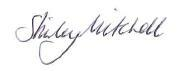 Shirley Mitchell